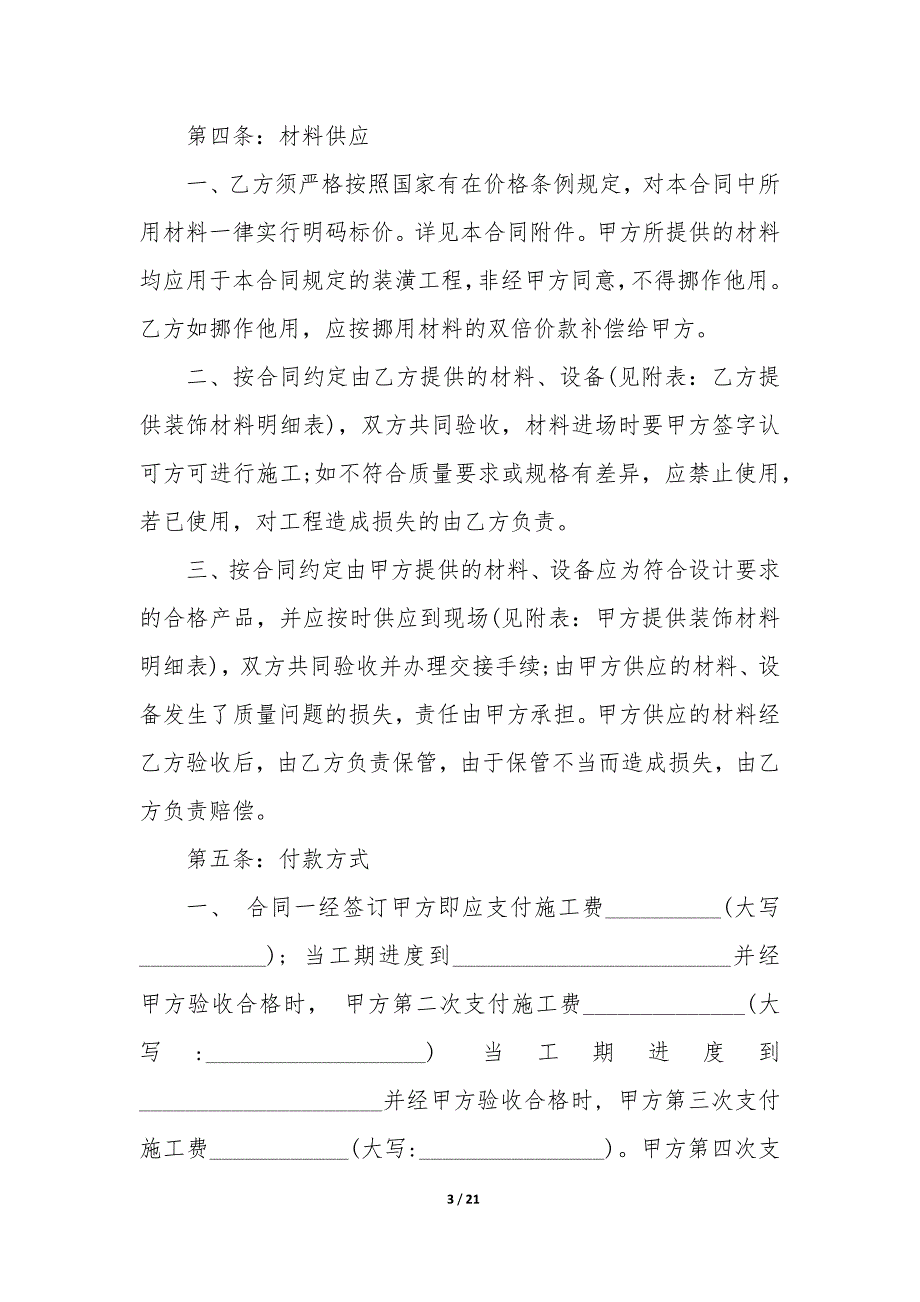 第四条：材料供应
一、乙方须严格按照国家有在价格条例规定，对本合同中所
用材料一律实行明码标价。详见本合同附件。甲方所提供的材料
均应用于本合同规定的装潢工程，非经甲方同意，不得挪作他用。
乙方如挪作他用，应按挪用材料的双倍价款补偿给甲方。
二、按合同约定由乙方提供的材料、设备(见附表：乙方提
供装饰材料明细表)，双方共同验收，材料进场时要甲方签字认
可方可进行施工;如不符合质量要求或规格有差异，应禁止使用，
若已使用，对工程造成损失的由乙方负责。
三、按合同约定由甲方提供的材料、设备应为符合设计要求
的合格产品，并应按时供应到现场(见附表：甲方提供装饰材料
明细表)，双方共同验收并办理交接手续;由甲方供应的材料、设
备发生了质量问题的损失，责任由甲方承担。甲方供应的材料经
乙方验收后，由乙方负责保管，由于保管不当而造成损失，由乙
方负责赔偿。
第五条：付款方式
一、 合同一经签订甲方即应支付施工费__________(大写
___________); 当工期进度到________________________并经
甲方验收合格时， 甲方第二次支付施工费______________(大
写:___________________) 当工期进度到
_____________________并经甲方验收合格时, 甲方第三次支付
施工费____________(大写:________________)。甲方第四次支
3 / 21